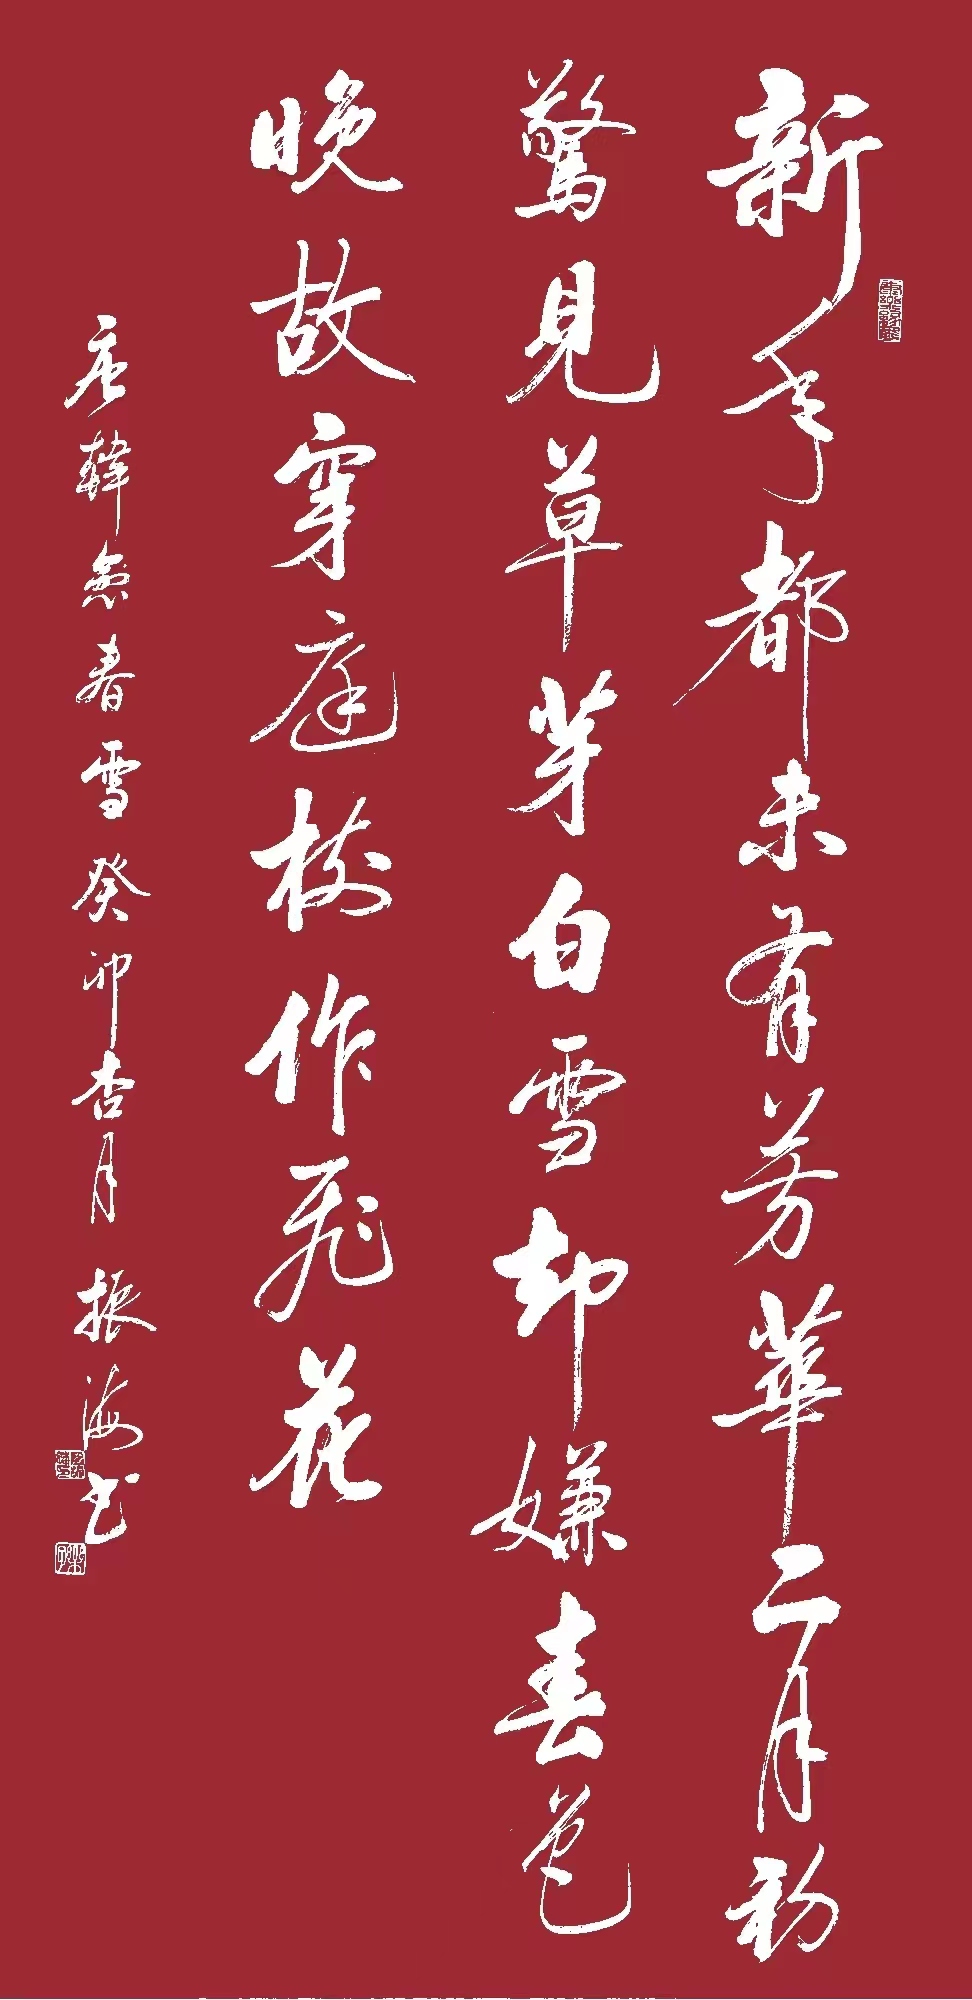 新年都未有芳華二月初
驚見草芽白雪却嫌春色
晚故穿庭樹作飛花
唐韓愈春雪癸卯杏月振海书